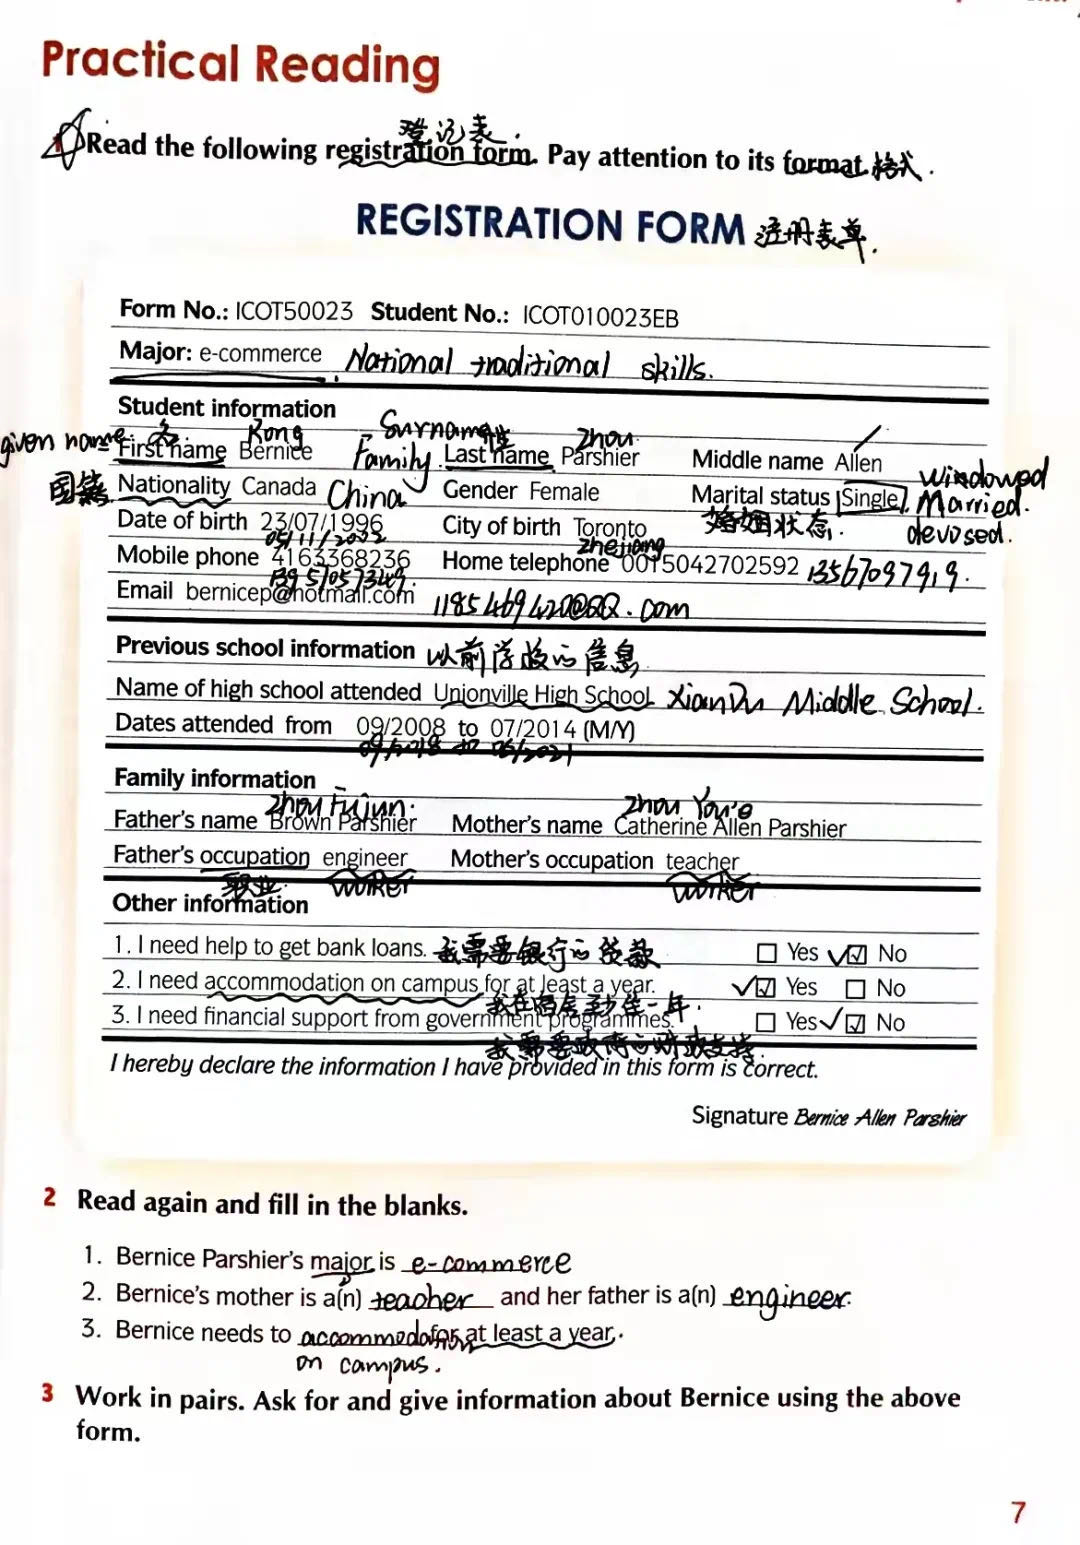 Practical Reading
登记表.
1 Read the following registration form. Pay attention to its format. 格式.
REGISTRATION FORM 注册表单.
Form No.: ICOT50023 Student No.: ICOT010023EB
Major: e-commerce National traditional skills.
Student information
given name 名 Rong Surname 姓 Zhou
First name Bernice Family Last name Parshier Middle name Allen
国籍 Nationality Canada China Gender Female Marital status Single Windowed Married. devosed.
婚姻状态.
Date of birth 23/07/1996 City of birth Toronto
05/11/2022 Zhejiang
Mobile phone 4163368236 Home telephone 0015042702592 13567097919.
Email bernicep@hotmail.com 1185469420@QQ.com
Previous school information 以前学校的信息
Name of high school attended Unionville High School XianDu Middle School.
Dates attended from 09/2008 to 07/2014 (M/Y)
09/2018 to 06/2021
Family information
Zhou Fujun. Zhou
Father's name Brown Parshier Mother's name Catherine Allen Parshier
Father's occupation engineer Mother's occupation teacher
职业 worker worker
Other information
1. I need help to get bank loans. 我需要银行的贷款 Yes No
2. I need accommodation on campus for at least a year. Yes No
我在宿舍至少住一年.
3. I need financial support from government programmes. Yes No
我需要政府的财政支持.
I hereby declare the information I have provided in this form is correct.
Signature Bernice Allen Parshier
2 Read again and fill in the blanks.
1. Bernice Parshier's major is e-commerce
2. Bernice's mother is a(n) teacher and her father is a(n) engineer.
3. Bernice needs to accommodation at least a year.
on campus.
3 Work in pairs. Ask for and give information about Bernice using the above
form.
7